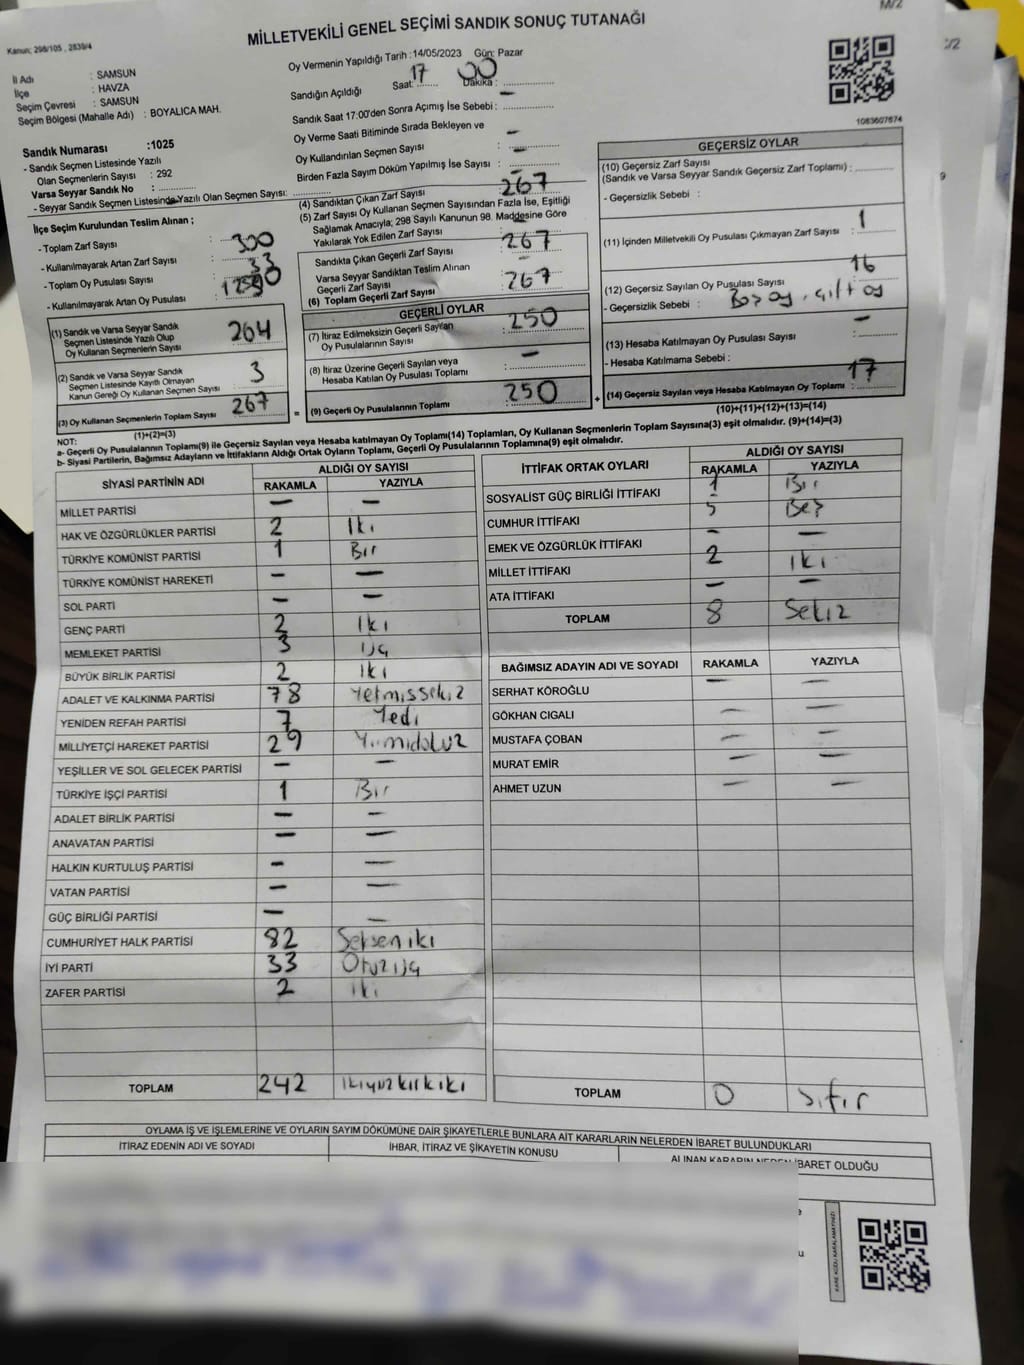 M/2
MİLLETVEKİLİ GENEL SEÇİMİ SANDIK SONUÇ TUTANAĞI
Kanun: 298/105 , 2839/4
İl Adı : SAMSUN
İlçe : HAVZA
Seçim Çevresi : SAMSUN
Seçim Bölgesi (Mahalle Adı) : BOYALICA MAH.
Oy Vermenin Yapıldığı Tarih :14/05/2023 Gün: Pazar
Sandığın Açıldığı Saat: 17 Dakika: 00
Sandık Saat 17:00'den Sonra Açımış İse Sebebi : -
Oy Verme Saati Bitiminde Sırada Bekleyen ve
Oy Kullandırılan Seçmen Sayısı : -
Birden Fazla Sayım Döküm Yapılmış İse Sayısı : -
1083607674
Sandık Numarası :1025
- Sandık Seçmen Listesinde Yazılı
Olan Seçmenlerin Sayısı : 292
Varsa Seyyar Sandık No :
- Seyyar Sandık Seçmen Listesinde Yazılı Olan Seçmen Sayısı:
İlçe Seçim Kurulundan Teslim Alınan ;
- Toplam Zarf Sayısı : 300
- Kullanılmayarak Artan Zarf Sayısı : 33
- Toplam Oy Pusulası Sayısı :
- Kullanılmayarak Artan Oy Pusulası :
(1) Sandık ve Varsa Seyyar Sandık
Seçmen Listesinde Yazılı Olup
Oy Kullanan Seçmenlerin Sayısı 264
(2) Sandık ve Varsa Seyyar Sandık
Seçmen Listesinde Kayıtlı Olmayan
Kanun Gereği Oy Kullanan Seçmen Sayısı 3
(3) Oy Kullanan Seçmenlerin Toplam Sayısı 267
(1)+(2)=(3)
(4) Sandıktan Çıkan Zarf Sayısı : 267
(5) Zarf Sayısı Oy Kullanan Seçmen Sayısından Fazla İse, Eşitliği
Sağlamak Amacıyla; 298 Sayılı Kanunun 98. Maddesine Göre
Yakılarak Yok Edilen Zarf Sayısı : -
Sandıkta Çıkan Geçerli Zarf Sayısı : 267
Varsa Seyyar Sandıktan Teslim Alınan
Geçerli Zarf Sayısı : -
(6) Toplam Geçerli Zarf Sayısı : 267
GEÇERLİ OYLAR
(7) İtiraz Edilmeksizin Geçerli Sayılan
Oy Pusulalarının Sayısı : 250
(8) İtiraz Üzerine Geçerli Sayılan veya
Hesaba Katılan Oy Pusulası Toplamı : -
= (9) Geçerli Oy Pusulalarının Toplamı : 250 +
GEÇERSİZ OYLAR
(10) Geçersiz Zarf Sayısı
(Sandık ve Varsa Seyyar Sandık Geçersiz Zarf Toplamı) :
- Geçersizlik Sebebi :
(11) İçinden Milletvekili Oy Pusulası Çıkmayan Zarf Sayısı : 1
(12) Geçersiz Sayılan Oy Pusulası Sayısı : 16
- Geçersizlik Sebebi : Boş oy, çift oy
(13) Hesaba Katılmayan Oy Pusulası Sayısı : -
- Hesaba Katılmama Sebebi :
(14) Geçersiz Sayılan veya Hesaba Katılmayan Oy Toplamı : 17
(10)+(11)+(12)+(13)=(14)
NOT:
a- Geçerli Oy Pusulalarının Toplamı(9) ile Geçersiz Sayılan veya Hesaba katılmayan Oy Toplamı(14) Toplamları, Oy Kullanan Seçmenlerin Toplam Sayısına(3) eşit olmalıdır. (9)+(14)=(3)
b- Siyasi Partilerin, Bağımsız Adayların ve İttifakların Aldığı Ortak Oyların Toplamı, Geçerli Oy Pusulalarının Toplamına(9) eşit olmalıdır.
SİYASİ PARTİNİN ADI ALDIĞI OY SAYISI
RAKAMLA YAZIYLA
MİLLET PARTİSİ - -
HAK VE ÖZGÜRLÜKLER PARTİSİ 2 İki
TÜRKİYE KOMÜNİST PARTİSİ 1 Bir
TÜRKİYE KOMÜNİST HAREKETİ - -
SOL PARTİ - -
GENÇ PARTİ 2 İki
MEMLEKET PARTİSİ 3 üç
BÜYÜK BİRLİK PARTİSİ 2 İki
ADALET VE KALKINMA PARTİSİ 78 Yetmişsekiz
YENİDEN REFAH PARTİSİ 7 Yedi
MİLLİYETÇİ HAREKET PARTİSİ 29 Yirmidokuz
YEŞİLLER VE SOL GELECEK PARTİSİ - -
TÜRKİYE İŞÇİ PARTİSİ 1 Bir
ADALET BİRLİK PARTİSİ - -
ANAVATAN PARTİSİ - -
HALKIN KURTULUŞ PARTİSİ - -
VATAN PARTİSİ - -
GÜÇ BİRLİĞİ PARTİSİ - -
CUMHURİYET HALK PARTİSİ 82 Seksen iki
İYİ PARTİ 33 Otuz üç
ZAFER PARTİSİ 2 iki
TOPLAM 242 ikiyüz kırk iki
İTTİFAK ORTAK OYLARI ALDIĞI OY SAYISI
RAKAMLA YAZIYLA
SOSYALİST GÜÇ BİRLİĞİ İTTİFAKI 1 Bir
CUMHUR İTTİFAKI 5 Beş
EMEK VE ÖZGÜRLÜK İTTİFAKI - -
MİLLET İTTİFAKI 2 iki
ATA İTTİFAKI - -
TOPLAM 8 Sekiz
BAĞIMSIZ ADAYIN ADI VE SOYADI RAKAMLA YAZIYLA
SERHAT KÖROĞLU - -
GÖKHAN CIGALI - -
MUSTAFA ÇOBAN - -
MURAT EMİR - -
AHMET UZUN - -
TOPLAM 0 Sıfır
OYLAMA İŞ VE İŞLEMLERİNE VE OYLARIN SAYIM DÖKÜMÜNE DAİR ŞİKAYETLERLE BUNLARA AİT KARARLARIN NELERDEN İBARET BULUNDUKLARI
İTİRAZ EDENİN ADI VE SOYADI İHBAR, İTİRAZ VE ŞİKAYETİN KONUSU ALINAN KARARIN NEDEN İBARET OLDUĞU